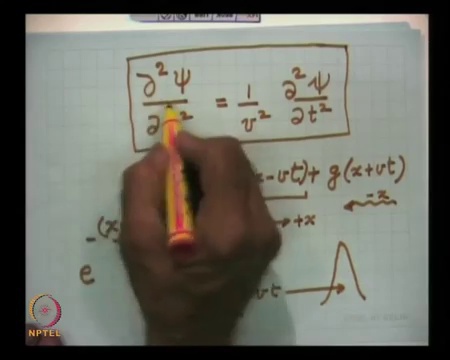 ∂²ψ/∂ ² = 1/v² ∂²ψ/∂t²
x - vt) + g(x + vt)
→ +x ← -x
e^-(x
vt →
NPTEL